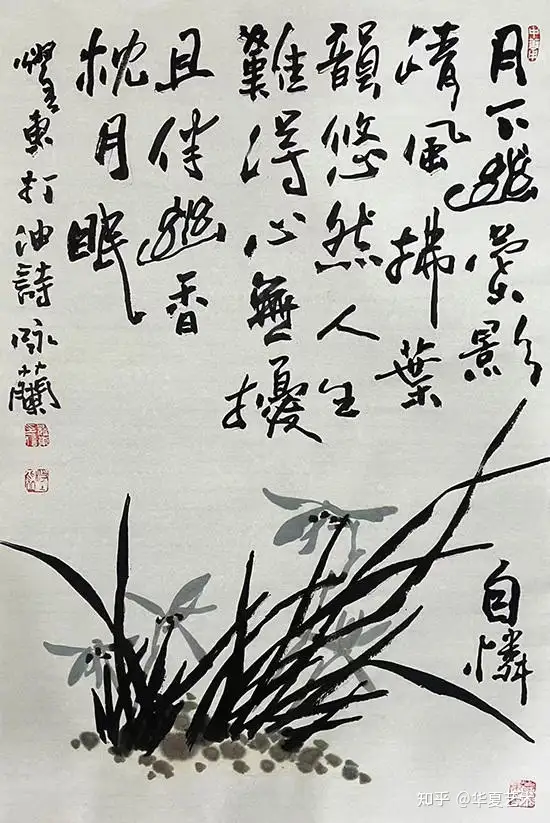 月下幽蘭影
自憐
清風拂葉
韻悠然人生
難得心無擾
且伴幽香
枕月眠
東打油詩咏蘭
知乎 @华夏艺术